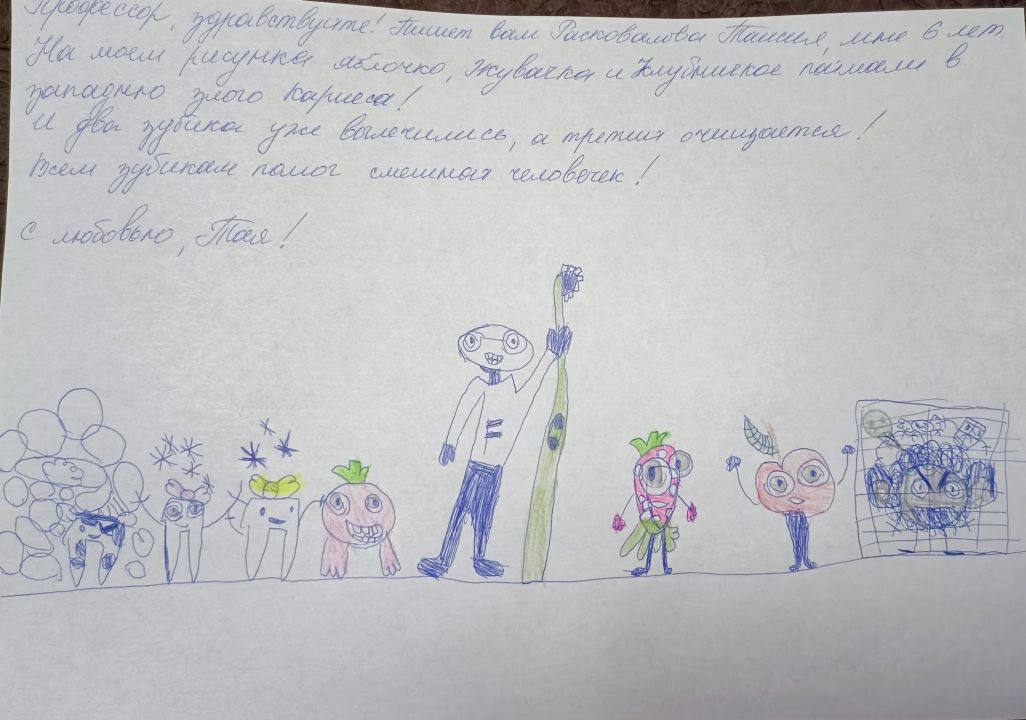 Профессор, здравствуйте! Пишет вам Расковалова Таисия, мне 6 лет
На моем рисунке яблочко, жувачка и клубничкое паймали в
западню злого кариеса!
И два зубика уже вылечились, а третих очищается!
Всем зубикам помог смешнох человечек!
С любовью, Тая!